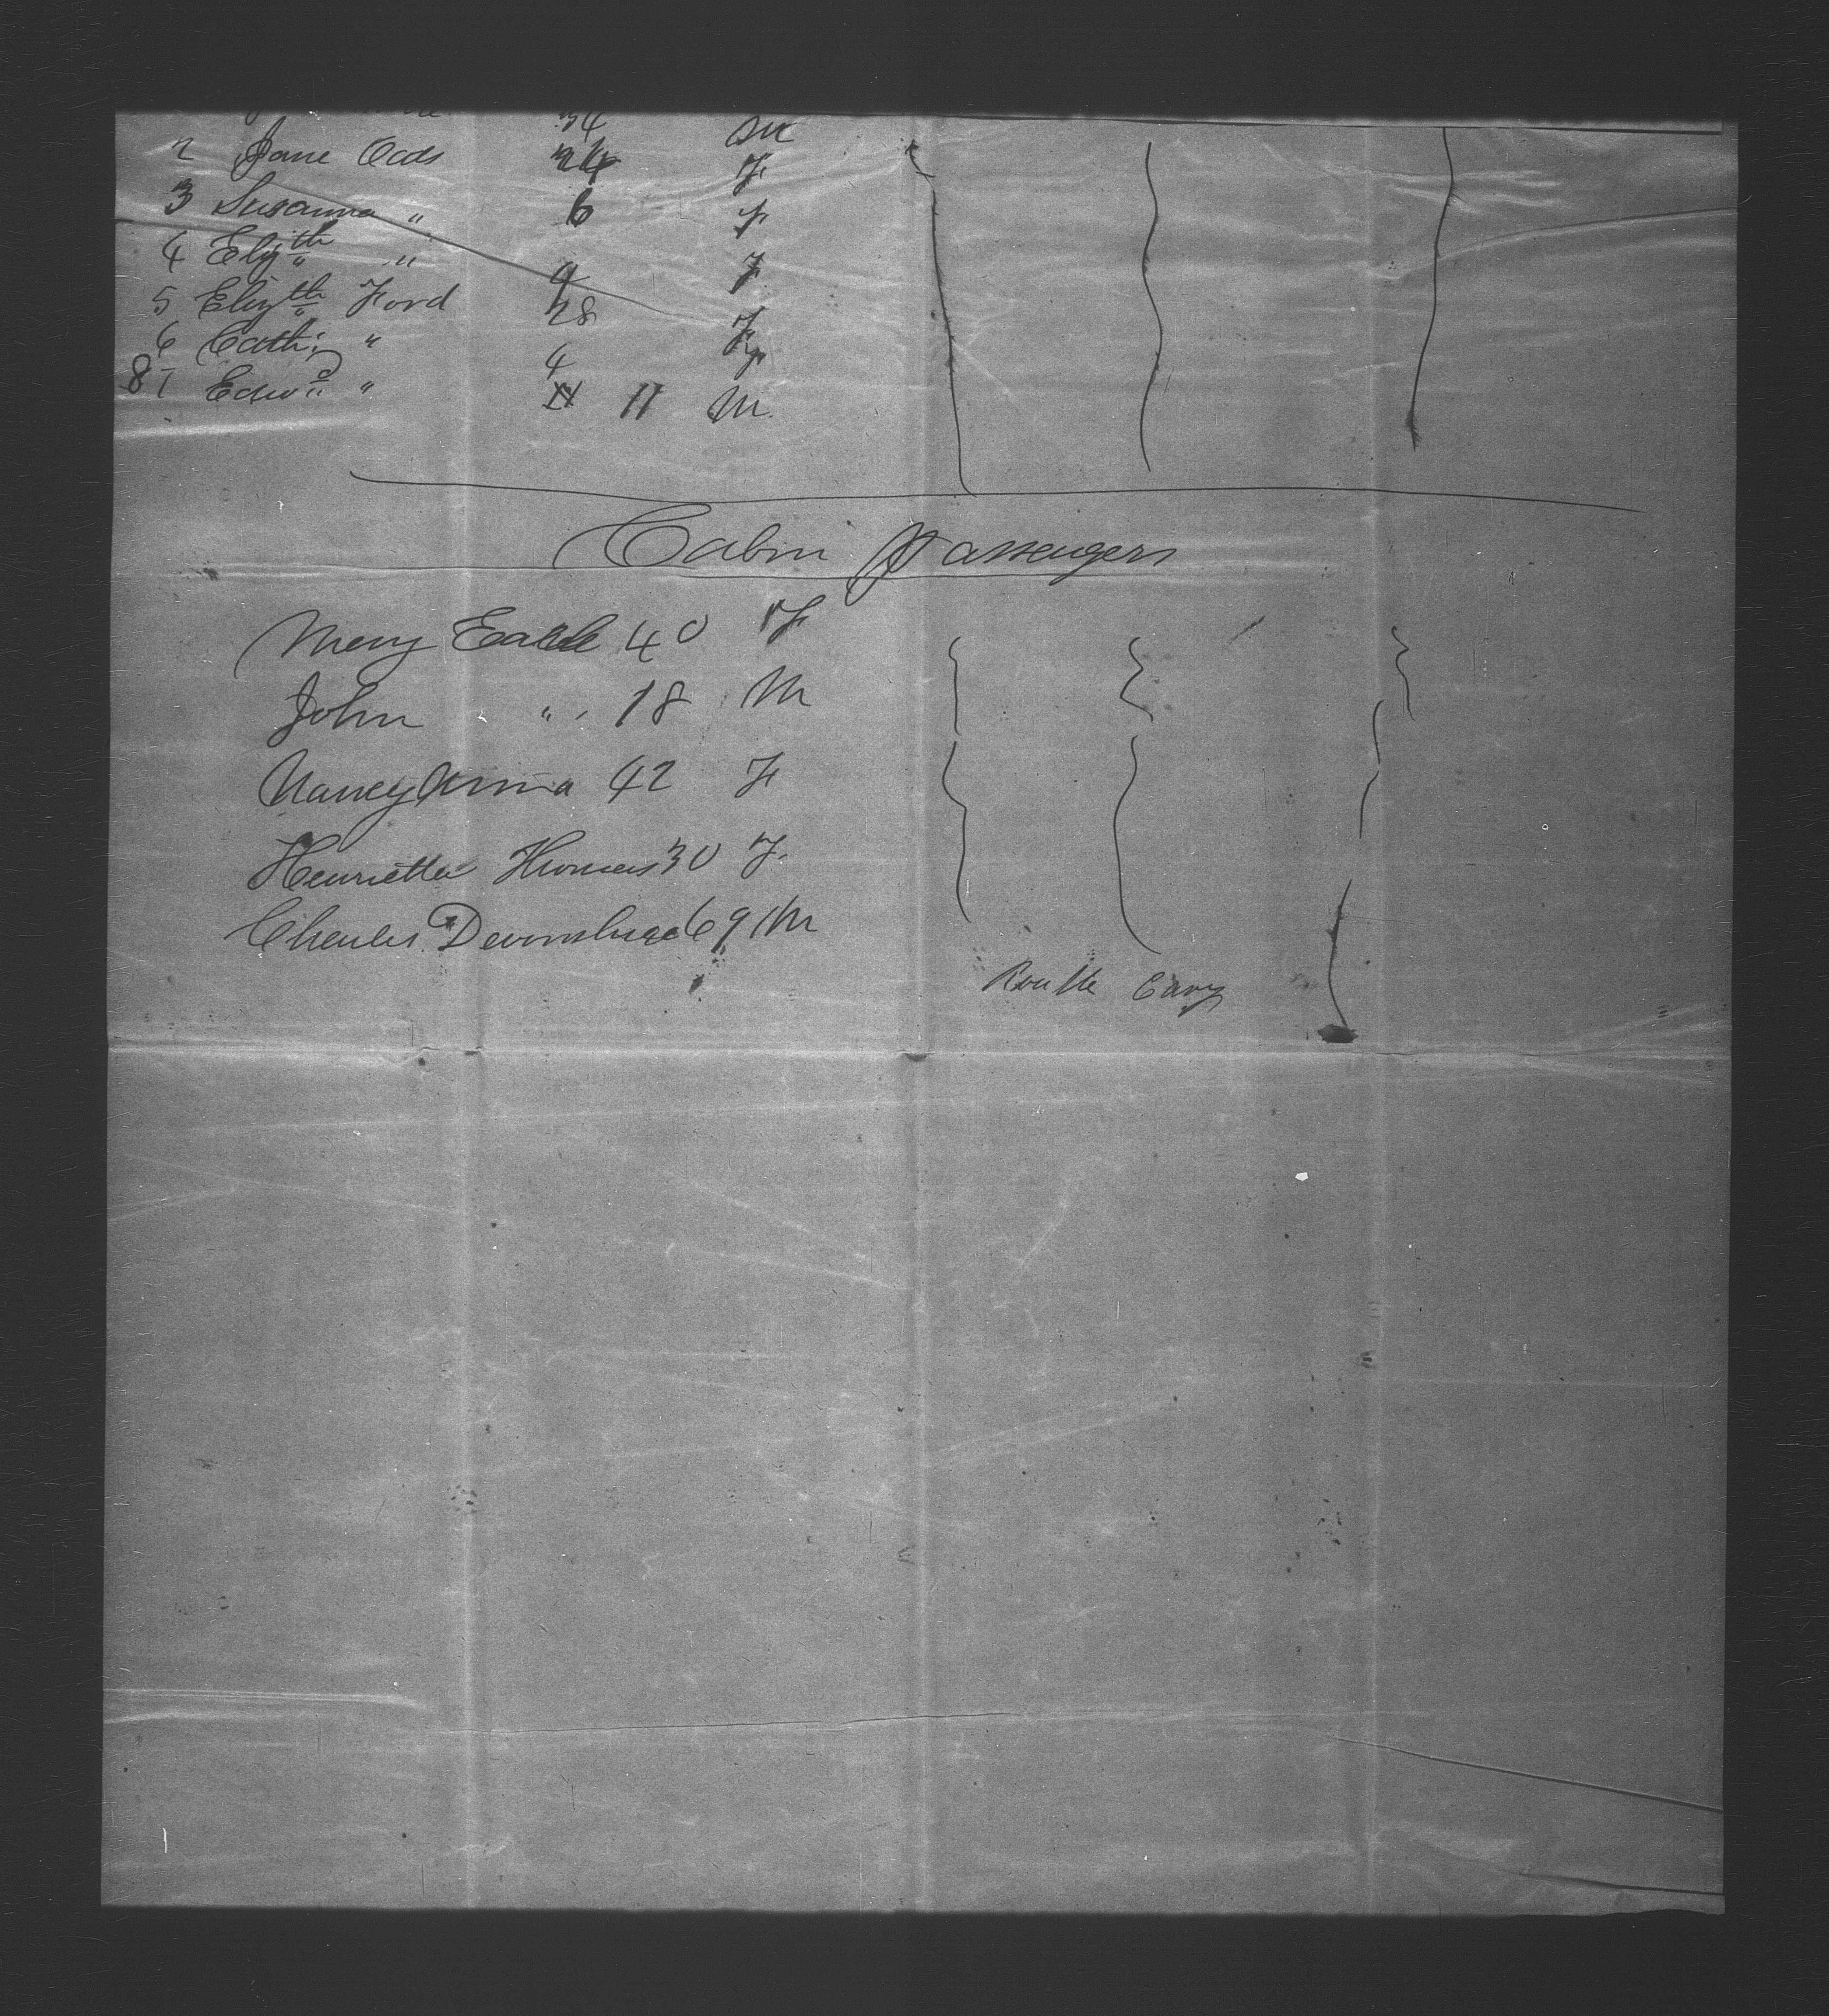 34 M
2 Jane Oads 24 F
3 Susanna " 6 F
4 Eliz.th " 9 F
5 Eliz.th Ford 28 F
6 Cath: " 4 F
87 Edw.d " 11 M
Cabin Passengers
Mary 40 F
John " 18 M
Nancy Anna 42 F
Henrietta Thomas 30 F
Charles Devonshire 69 M